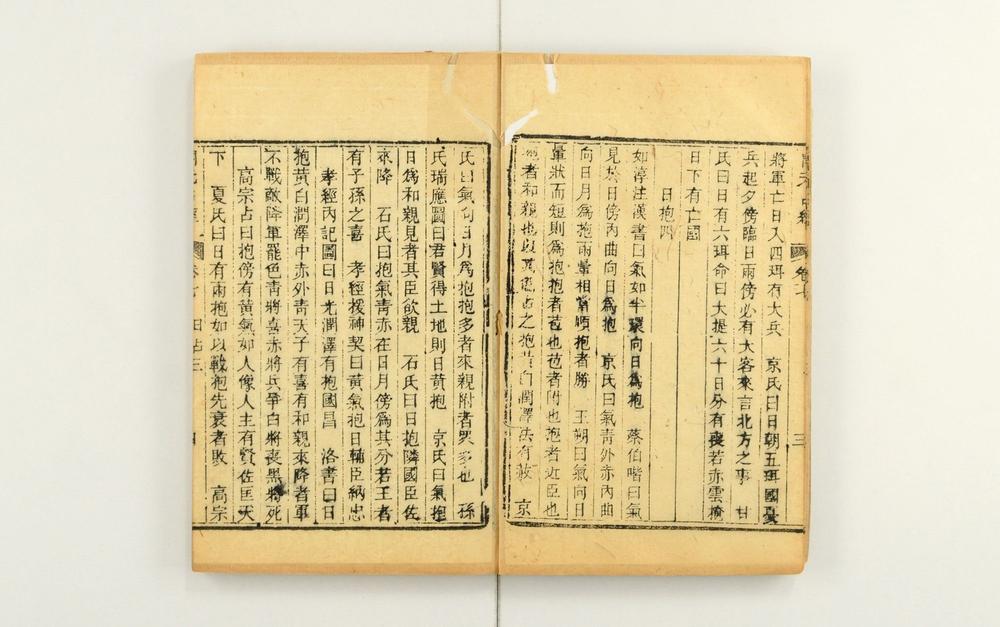 將軍亡日入四珥有大兵　京氏曰日朝五珥國憂
兵起夕傍臨日兩傍必有大客來言北方之事　甘
氏曰日有六珥命曰大提六十日分有喪若赤雲掩
日下有亡國
日抱四
如淳注漢書曰氣如半環向日爲抱　蔡伯喈曰氣
見於日傍內曲向日爲抱　京氏曰氣靑外赤內曲
向日月爲抱兩暈相當順抱者勝　王朔曰氣向日
暈狀而短則爲抱抱者苞也苞者附也抱者近臣也
抱者和親也以其色占之抱黃白潤澤法有赦　京
氏曰氣向日月爲抱抱多者來親附者衆多也　孫
氏瑞應圖曰君賢得土地則日黃抱　京氏曰氣抱
日爲和親見者其臣欲親　石氏曰日抱隣國臣佐
來降　石氏曰抱氣靑赤在日月傍爲其分若王者
有子孫之喜　孝經援神契曰黃氣抱日輔臣納忠
孝經內記圖曰日光潤澤有抱國昌　洛書曰日
抱黃白潤澤中赤外靑天子有喜有和親來降者軍
不戰敵降軍罷色靑將喜赤將兵爭白將喪黑將死
高宗占曰抱傍有黃氣如人像人主有賢佐匡天
下　夏氏曰日有兩抱如以戰抱先衰者敗　高宗